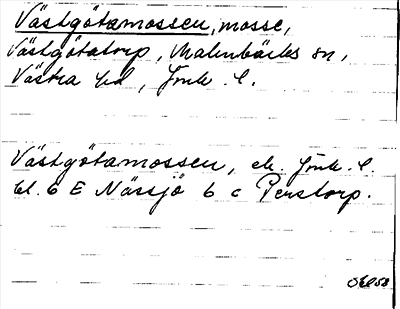 Västgötamossen, mosse,
Västgötatorp, Malmbäcks sn,
Västra hd, Jönk. l.
Västgötamossen, ek. Jönk. l.
bl. 6 E Nässjö 6 c Perstorp.